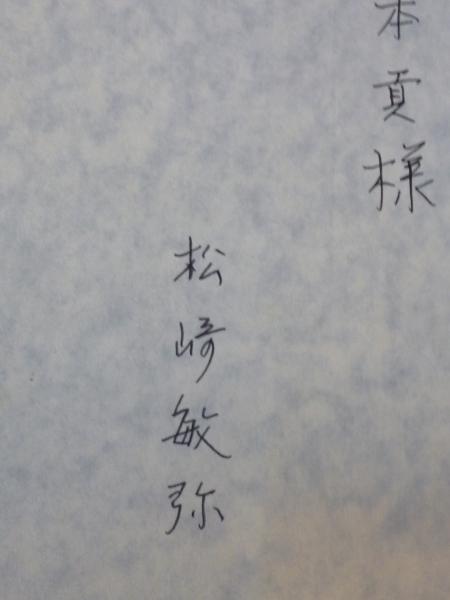 本貢様
松崎敏弥